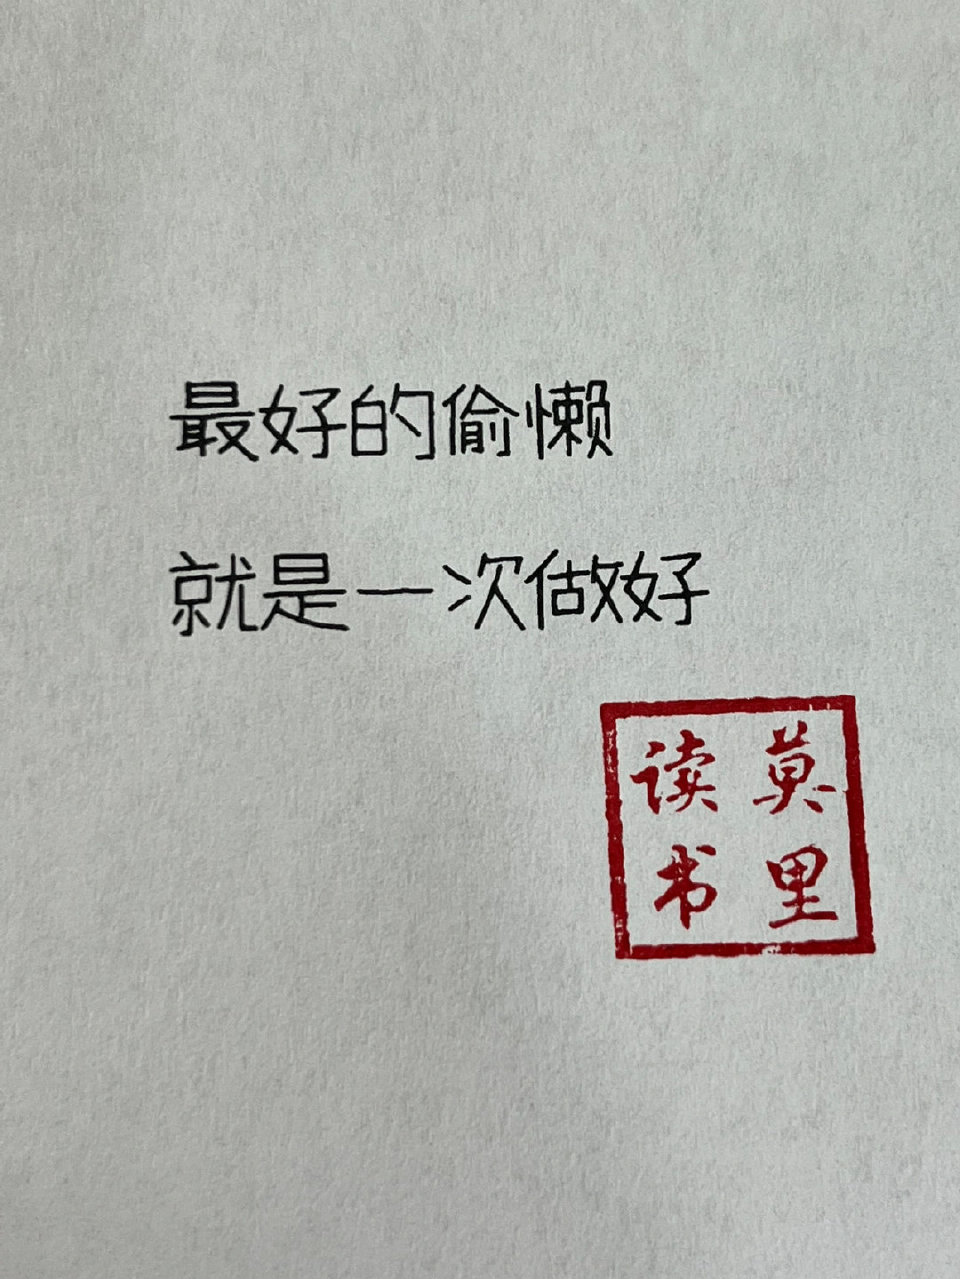 最好的偷懒
就是一次做好
莫里
读书